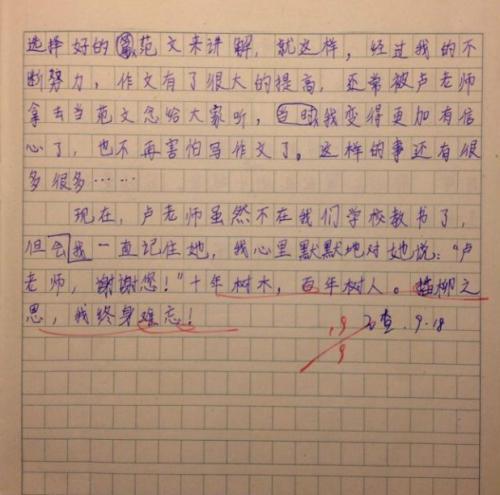 选择好的范文来讲解，就这样，经过我的不
断努力，作文有了很大的提高，还常被卢老师
拿去当范文念给大家听，当时我变得更加有信
心了，也不再害怕写作文了。这样的事还有很
多很多……
现在，卢老师虽然不在我们学校教书了，
但会我一直记住她，我心里默默地对她说："卢
老师，谢谢您！"十年树木，百年树人。插柳之
思，我终身难忘！
查.9.18